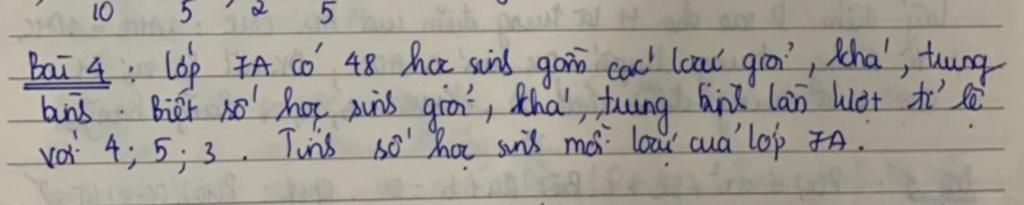 10 5 2 5
Bài 4 : Lớp 7A có 48 học sinh gồm các loại giỏi, khá, trung
bình. Biết số học sinh giỏi, khá, trung bình lần lượt tỉ lệ
với 4; 5; 3. Tính số học sinh mỗi loại của lớp 7A.